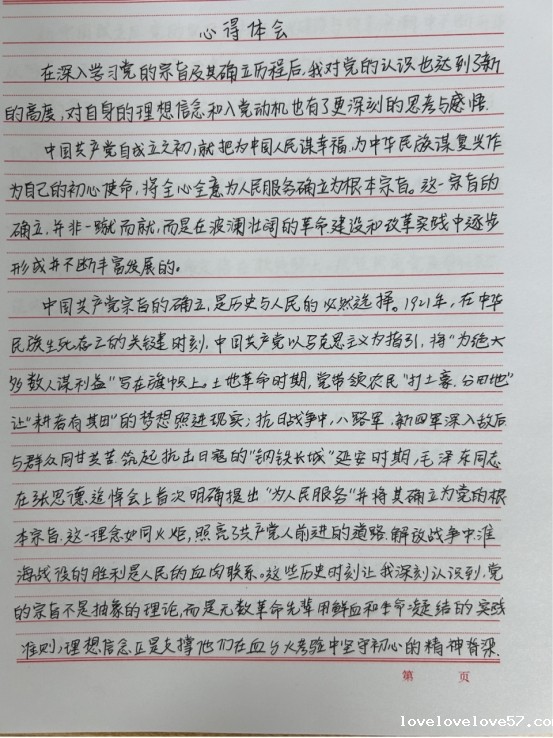 心得体会
在深入学习党的宗旨及其确立历程后,我对党的认识也达到了新
的高度,对自身的理想信念和入党动机也有了更深刻的思考与感悟.
中国共产党自成立之初,就把为中国人民谋幸福,为中华民族谋复兴作
为自己的初心使命,将全心全意为人民服务确立为根本宗旨。这一宗旨的
确立,并非一蹴而就,而是在波澜壮阔的革命建设和改革实践中逐步
形成并不断丰富发展的。
中国共产党宗旨的确立,是历史与人民的必然选择。1921年,在中华
民族生死存亡的关键时刻,中国共产党以马克思主义为指引,将"为绝大
多数人谋利益"写在旗帜上。土地革命时期,党带领农民"打土豪、分田地"
让"耕者有其田"的梦想照进现实;抗日战争中,八路军,新四军深入敌后
与群众同甘共苦.筑起抗击日寇的"钢铁长城"延安时期,毛泽东同志
在张思德追悼会上首次明确提出"为人民服务"并将其确立为党的根
本宗旨.这一理念如同火炬,照亮了共产党人前进的道路.解放战争中淮
海战役的胜利是人民的血肉联系。这些历史时刻让我深刻认识到,党
的宗旨不是抽象的理论,而是无数革命先辈用鲜血和生命凝结的实践
准则,理想信念正是支撑他们在血与火考验中坚守初心的精神脊梁.
第 页
lovelovelove57.com